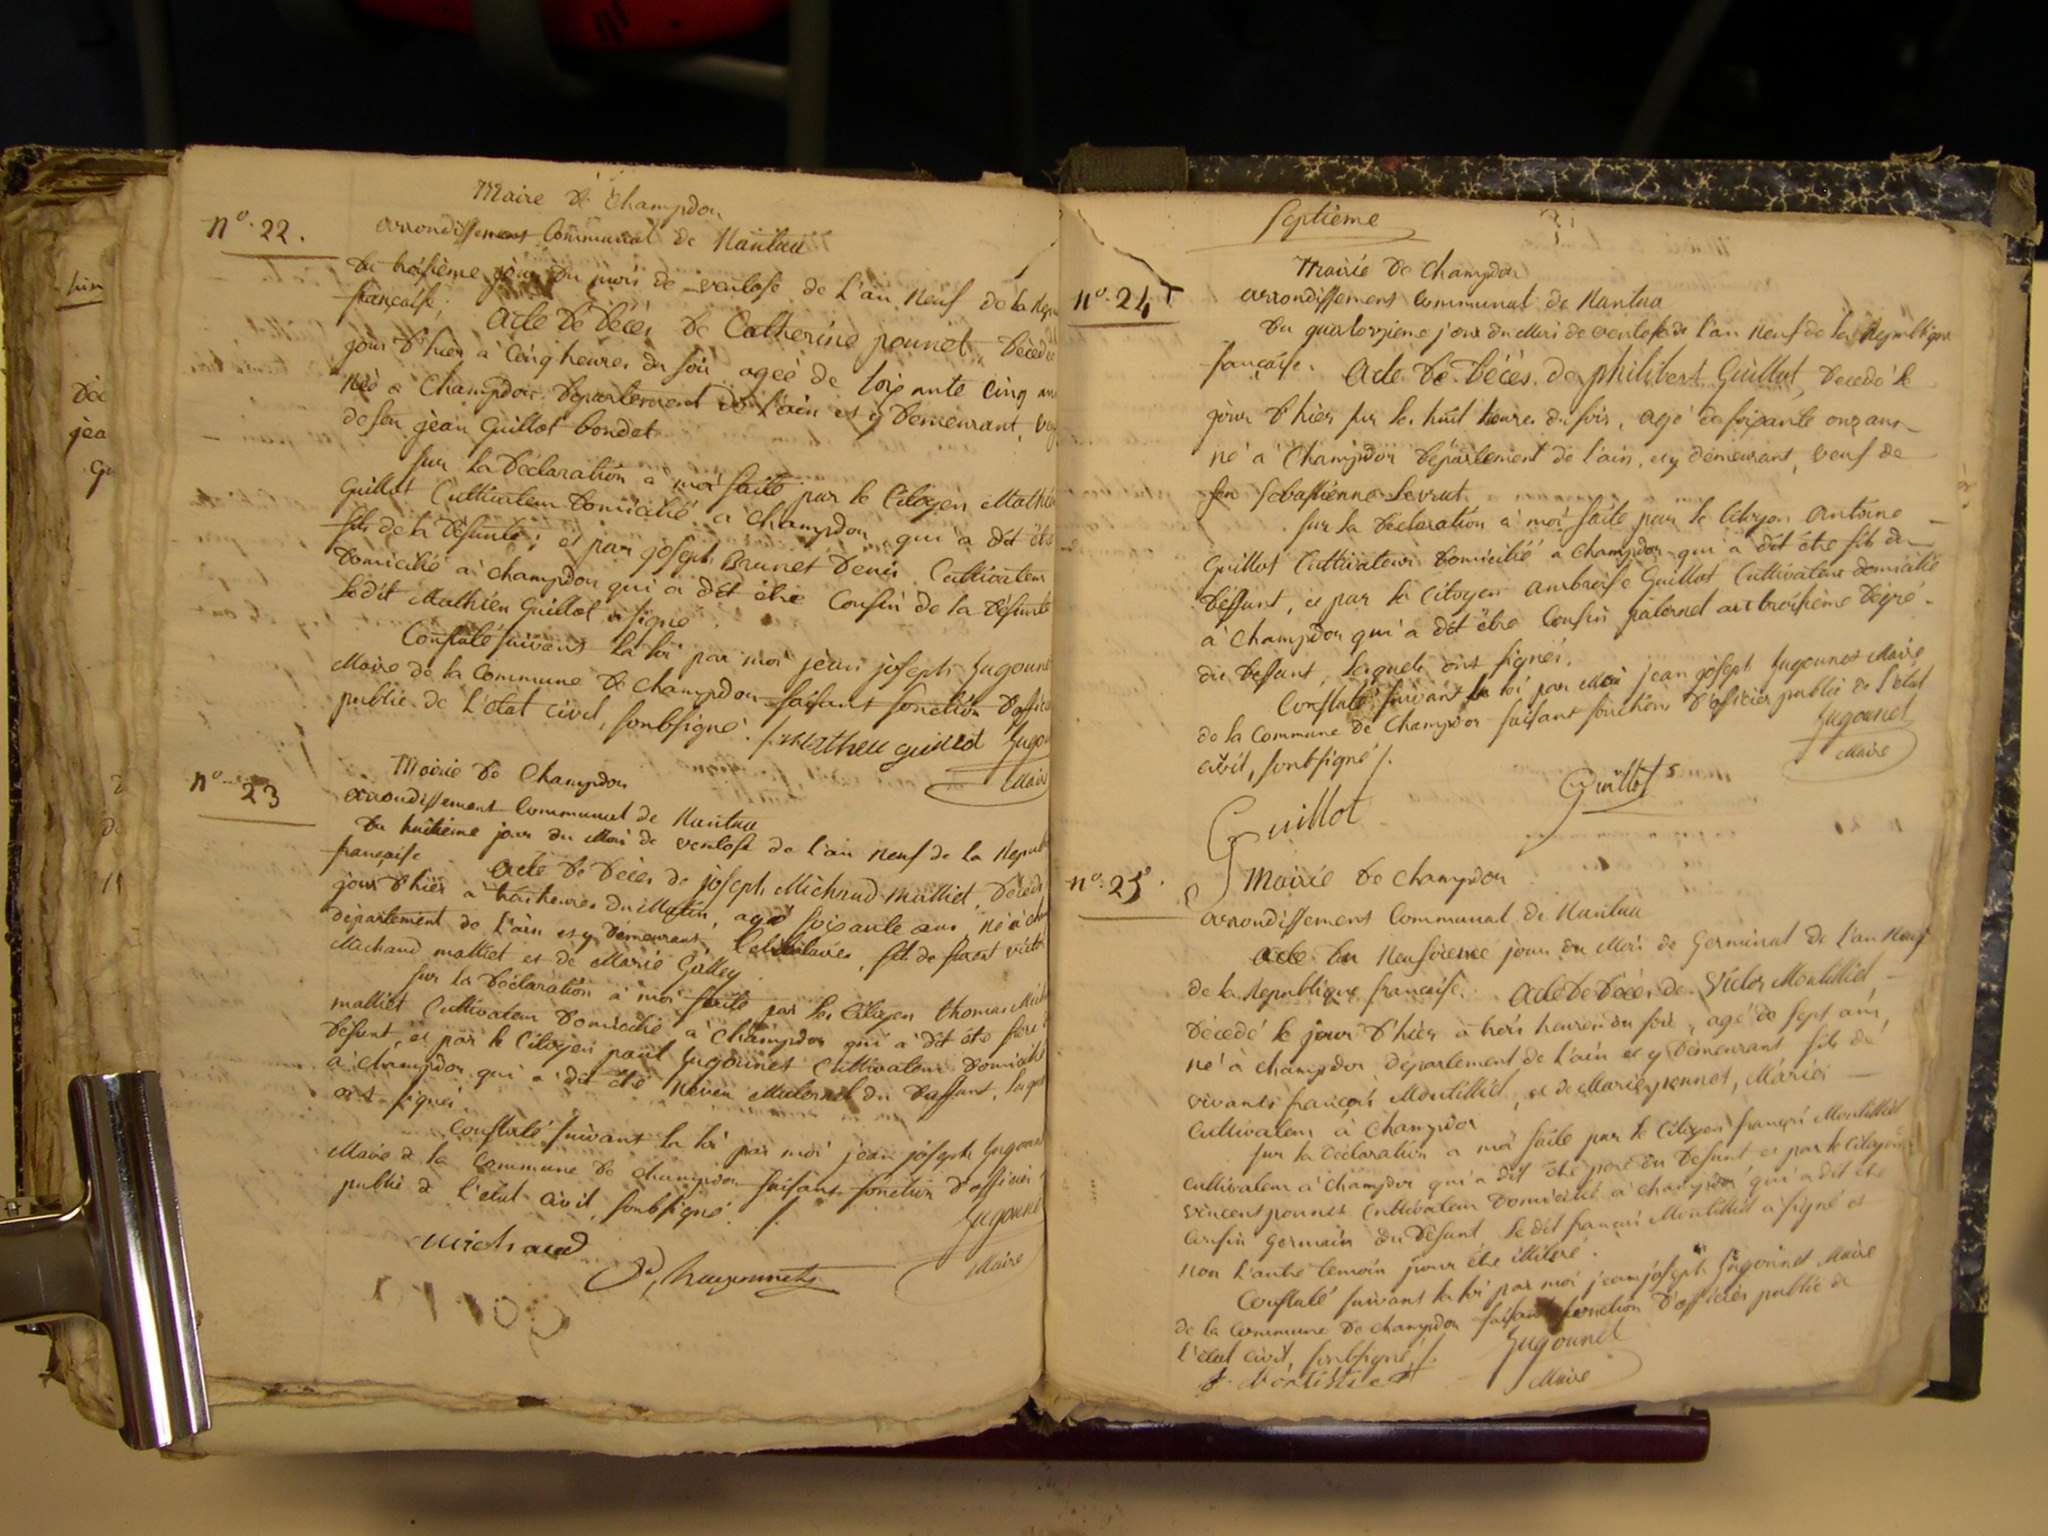 hin
Déc
jea
gu
Maire de Champdor
n° 22.
arrondissement Communal de Nantua
Du troisième jour du mois de ventose de l'an neuf de la Repu
française; Acte de Décès de Catherine ponnet, Décédée
jour d'hier à Cinq heures du soir agée de soixante cinq ans
née à Champdor Département de l'ain et y Demeurant, ve
de feu jean Guillot bondet
Sur la Déclaration à moi faite par le Citoyen Mathieu
Guillot Cultivateur Domicilié à Champdor, qui a dit être
fils de la Défunte; et par joseph Brunet Denis Cultivateur
Domicilié à Champdor qui a dit être Cousin de la Défunte
Ledit Mathieu Guillot a signé.
Constaté suivant la loi par moi jean joseph Gugonnet
Maire de la Commune de Champdor faisant fonction d'officier
public de l'état civil, soussigné. Matheu guillot Gugon
Maire
n° 23
Mairie de Champdor
arrondissement Communal de Nantua
Du huitième jour du Mois de ventose de l'an neuf de la Repub
française Acte de Décès de joseph Michaud Malliet, Décédé
jour d'hier à trois heures du Matin, agé soixante ans, né à cha
département de l'ain et y demeurant, Celibataire, fils de
Michaud malliet et de Marie Galley
Sur la Déclaration à moi faite par les Citoyen thomas Mich
malliet Cultivateur Domicilié à Champdor qui a dit être frere
Défunt, et par le Citoyen paul Gugonnet Cultivateur Domicilié
à Champdor qui a dit être neveu Maternel du Deffunt, lesquels
ont signés.
Constaté suivant la loi par moi jean joseph Gugonnet
Maire de la Commune de Champdor faisant fonction d'officier
public de l'état civil, soussigné.
Gugonnet
michaud
Maire
Septieme
n° 24
Mairie de Champdor
arrondissement Communal de Nantua
Du quatorzieme jour du Mois de ventose de l'an neuf de la Republique
française. Acte de Décès de philibert Guillot, Decedé le
jour d'hier sur les huit heures du soir, agé de soixante onz ans
né à Champdor Département de l'ain, et y demeurant, veuf de
feu Sebastienne Levrat
Sur la Déclaration à moi faite par le Citoyen Antoine
Guillot Cultivateur Domicilié à Champdor qui a dit être fils du
Deffunt, et par le Citoyen ambroise Guillot Cultivateur domicilié
à Champdor qui a dit être Cousin paternel au troisième Degré
du Deffunt, lesquels ont signés.
Constaté suivant la loi par Moi jean joseph Gugonnet Maire
de la Commune de Champdor faisant fonction d'officier public de l'état
civil, soussigné /.
Gugonnet
Maire
Guillot
Guillot
n° 25
Mairie de Champdor
arrondissement Communal de Nantua
Acte du neufvieme jour du Mois de Germinal de l'an neuf
de la Republique française. Acte de Décès de Victor Montillied
Décédé le jour d'hier à trois heures du soir, agé de sept ans,
né à Champdor Département de l'ain et y Demeurant fils de
vivants françois Montilliet, et de Marie ponnet, Mariés
Cultivateur à Champdor
Sur la Déclaration à moi faite par le Citoyen françois Montilliet
Cultivateur à Champdor qui a dit être pere du Defunt et par le Citoyen
vincent ponnet Cultivateur Domicilié à Champdor qui a dit être
Cousin Germain du Défunt Le dit francois Montilliet a signé et
non l'autre temoin pour être illiteré.
Constaté suivant la loi par moi jean joseph Gugonnet Maire
de la Commune de Champdor faisant fonction d'officier public de
l'état civil, soussigné /.
Gugonnet
Maire